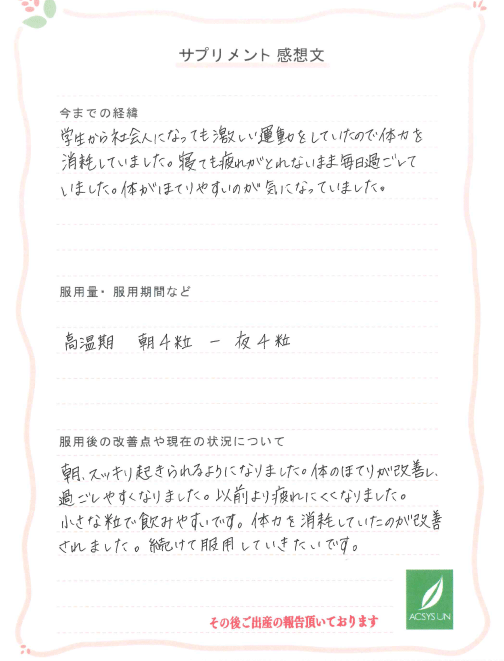 サプリメント 感想文
今までの経緯
学生から社会人になっても激しい運動をしていたので体力を
消耗していました。寝ても疲れがとれないまま毎日過ごして
いました。体がほてりやすいのが気になっていました。
服用量・服用期間など
高温期 朝4粒 ー 夜4粒
服用後の改善点や現在の状況について
朝、スッキリ起きられるようになりました。体のほてりが改善し、
過ごしやすくなりました。以前より疲れにくくなりました。
小さな粒で飲みやすいです。体力を消耗していたのが改善
されました。続けて服用していきたいです。
その後ご出産の報告頂いております
ACSYS UN